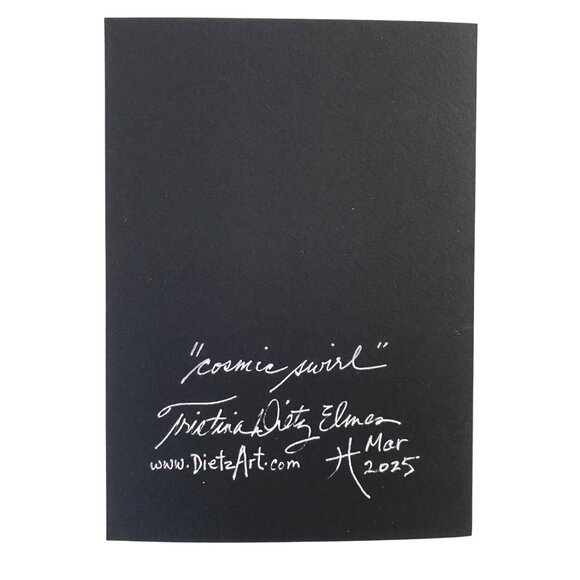 "cosmic swirl"
Tristina Dietz Elmes
www.DietzArt.com
Mar
2025